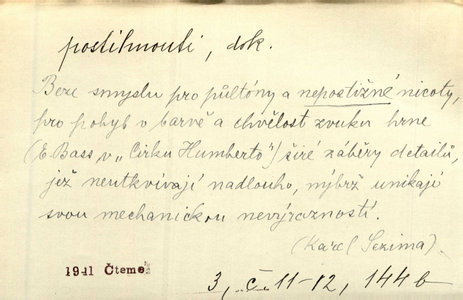 postihnouti, dok.
Beze smyslu pro půltóny a nepostižné nicoty,
pro pohyb v barvě a chvělost zvuku hrne
(E. Bass v „Cirku Humberto“) širé záběry detailů,
jež neutkvívají nadlouho, nýbrž unikají
svou mechanickou nevýrazností.
(Karel Sezima).
1941 Čteme
3, č. 11-12, 144b